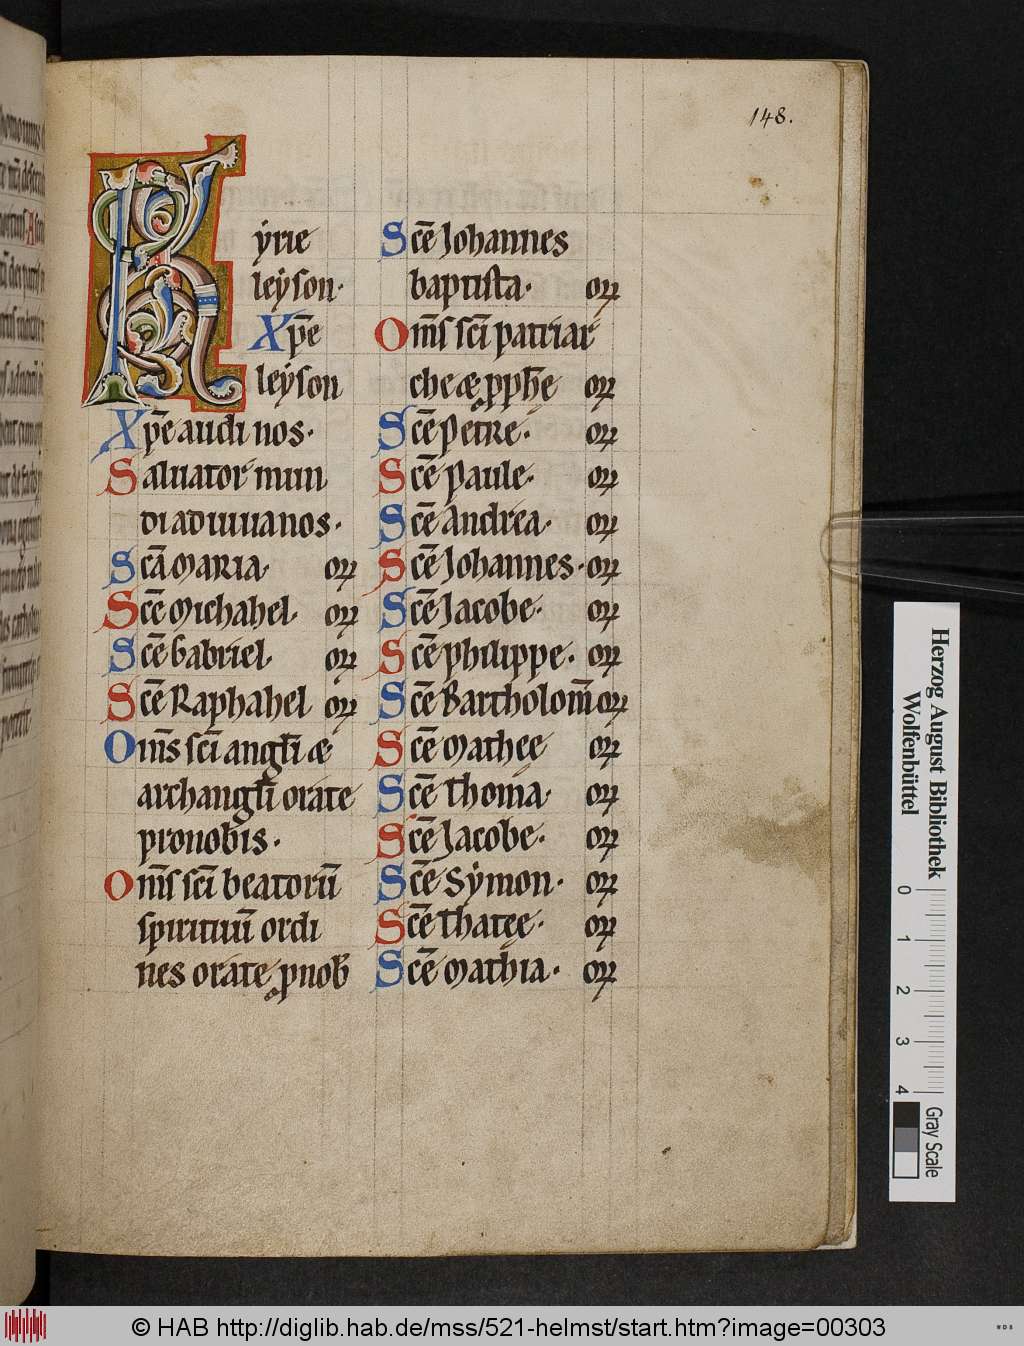 148.
Kyrie
leyson.
Xp̄e
leyson
Xp̄e audi nos.
Saluator mun
di adiuua nos.
Sc̄a maria. or̄
Sc̄e michahel. or̄
Sc̄e Gabriel. or̄
Sc̄e Raphahel or̄
Om̄s sc̄i angl̄i æ
archangl̄i orate
pro nobis.
Om̄s sc̄i beatorū
spirituū ordi
nes orate p nob̄
Sc̄e Johannes
baptista. or̄
Om̄s sc̄i patriar
che æ pph̄e or̄
Sc̄e petre. or̄
Sc̄e paule. or̄
Sc̄e andrea. or̄
Sc̄e Johannes. or̄
Sc̄e Jacobe. or̄
Sc̄e philippe. or̄
Sc̄e Bartholom̄ or̄
Sc̄e mathee or̄
Sc̄e thoma. or̄
Sc̄e Jacobe. or̄
Sc̄e Symon. or̄
Sc̄e thatee. or̄
Sc̄e mathia. or̄
Herzog August Bibliothek
Wolfenbüttel
0 1 2 3 4
Gray Scale
© HAB http://diglib.hab.de/mss/521-helmst/start.htm?image=00303